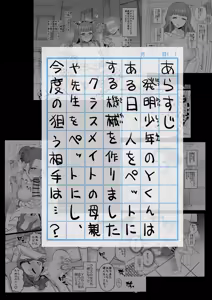 あらすじ
発明少年のYくんは
ある日、人をペットに
する機械を作りました
クラスメイトの母親
や先生をペットにし、
今度の狙う相手は…?